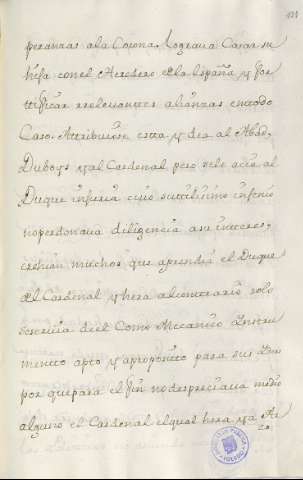 131
peranzas a la Corona. Lograua Casar su
hija con el eredero de la España, y for
tificar relevantes alianzas en todo
Caso. Attribuiose esta ydea al Abad,
Duboys, y al Cardenal pero solo acia al
Duque inferia cuio suttilissimo ingenio
no perdonaua diligencia a su interes,
crehian muchos que aprendia el Duque
del Cardenal y hera al contrario solo
se seruia de el Como Mecanico Instru
mento apto y aproposito para sus
por que para el fin no despreciaua medio
alguno el Cardenal el qual hera ya Ar